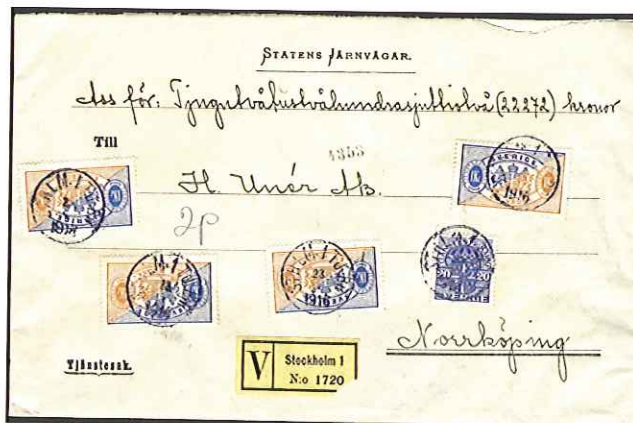 STATENS JÄRNVÄGAR.
Ass för: Tjugutvåtustvåhundrasjuttiotvå (22272) kronor
Till
1353
H. Unér Ab.
2p
1916
SVERIGE
1916
1916
20 20
Norrköping
Tjänstesak.
V Stockholm 1
N:o 1720